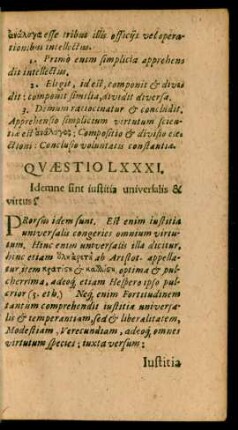 ἀνάλογα esse tribus illis officijs vel opera-
tionibus intellectus.
1. Primò enim simplicia apprehen-
dit intellectus.
2. Eligit, id est, componit & divi-
dit: componit similia, dividit diversa.
3. Demum ratiocinatur & concludit.
Apprehensio simplicium virtutum scien-
tiæ est ἀνάλογος: Compositio & divisio ele-
ctioni: Conclusio voluntatis constantiæ.
QVÆSTIO LXXXI.
Idemne sint iustitia universalis &
virtus?
PRorsus idem sunt. Est enim iustitia
universalis congeries omnium virtu-
tum. Hinc enim universalis illa dicitur,
hinc etiam ab Aristot. appella-
tur item & optima & pul-
cherrima, adeoq; etiam Hespero ipso pul-
crior (5. eth.) Neq; enim Fortitudinem
tantum comprehendit iustitia universa-
lis & temperantiam, sed & liberalitatem,
Modestiam, Verecundiam, adeoq; omnes
virtutum species: iuxta versum:
Iustitia